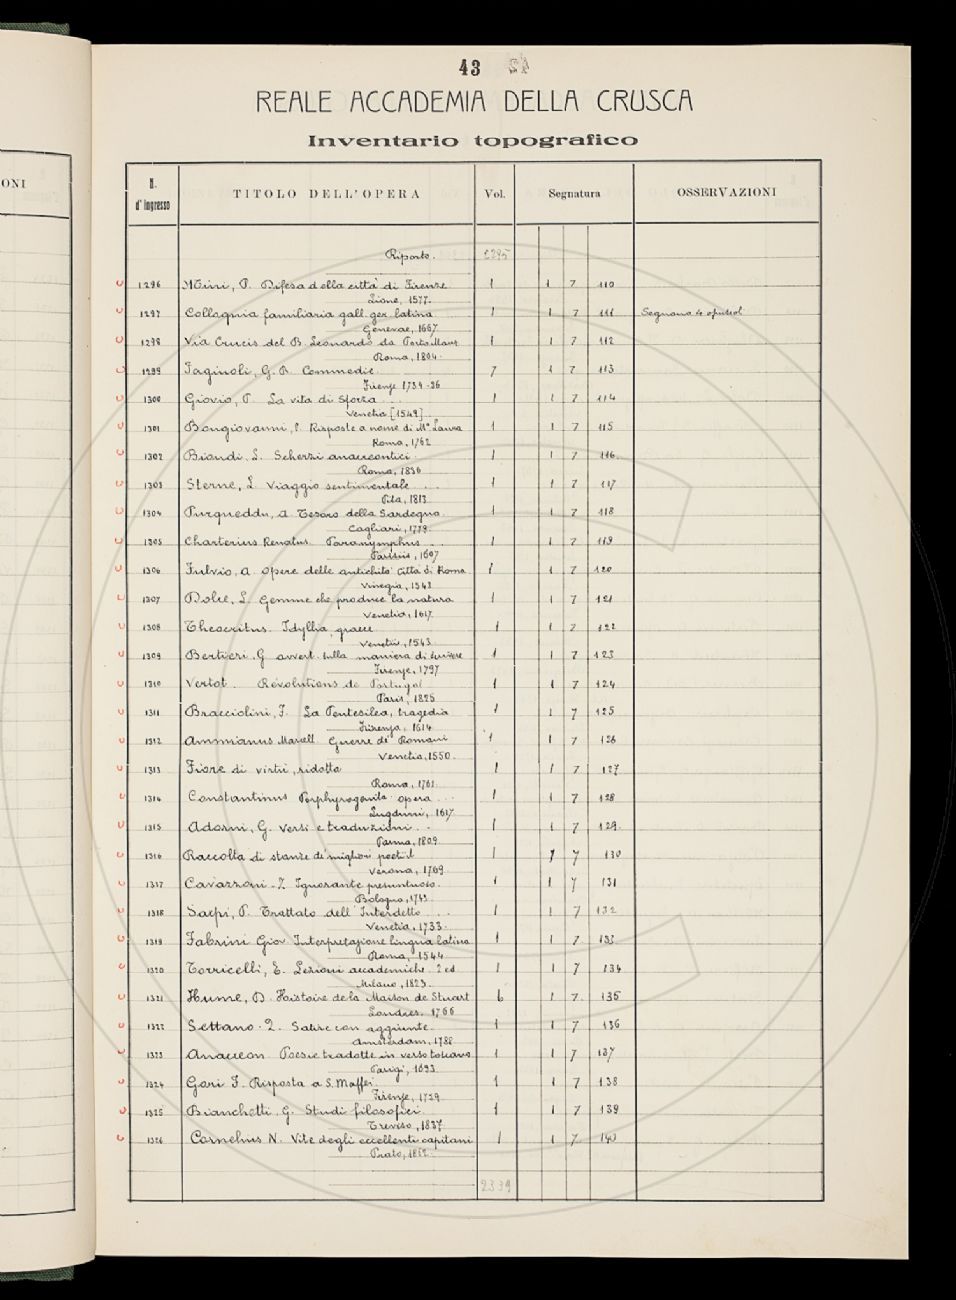 ONI
43
REALE ACCADEMIA DELLA CRUSCA
Inventario topografico
N. d'Ingresso TITOLO DELL'OPERA Vol. Segnatura OSSERVAZIONI
Riporto. 2295
1296 Mini, P. Difesa della città di Firenze 1 1 7 110
Lione, 1577.
1297 Colloquia familiaria gall. ger. latina 1 1 7 111 Seguono 4 opuscol
Genevae, 1667.
1298 Via Crucis del B. Leonardo da Porto Maur. 1 1 7 112
Roma, 1804.
1299 Fagiuoli, G. B. Commedie. 7 1 7 113
Firenze 1734-36
1300 Giovio, P. La vita di Sforza 1 1 7 114
Venetia [1549]
1301 Bongiovanni, P. Risposte a nome di Mª Laura 1 1 7 115
Roma, 1762
1302 Biondi, L. Scherzi anacreontici. 1 1 7 116.
Roma, 1836
1303 Sterne, L. Viaggio sentimentale 1 1 7 117
Pisa, 1813
1304 Purqueddu, A. Tesoro della Sardegna 1 1 7 118
Cagliari, 1779.
1305 Charterius Renatus. Paranymphus 1 1 7 119
Parisiis, 1607
1306 Fulvio, A. Opere delle antichità città di Roma 1 1 7 120
Vinegia, 1543
1307 Dolce, L. Gemme che produce la natura 1 1 7 121
Venetia, 1617.
1308 Theocritus. Idyllia, graece 1 1 7 122
Venetiis, 1543.
1309 Bertieri, G. avvert. sulla maniera di scrivere 1 1 7 123
Firenze, 1797
1310 Vertot. Révolutions de Portugal 1 1 7 124
Paris, 1825
1311 Bracciolini, F. La Pentesilea, tragedia 1 1 7 125
Firenze, 1614
1312 Ammianus Marcell. Guerre de' Romani 1 1 7 126
Venetia, 1550.
1313 Fiore di virtù, ridotto 1 1 7 127
Roma, 1761.
1314 Constantinus Porphyrogenita opera 1 1 7 128
Lugduni, 1617.
1315 Adorni, G. Versi e traduzioni. 1 1 7 129.
Parma, 1809
1316 Raccolta di stanze di migliori poeti d 1 1 7 130
Verona, 1769.
1317 Cavazzoni-Z. Ignorante presuntuoso. 1 1 7 131
Bologna, 1743.
1318 Sarpi, P. Trattato dell'Interdetto 1 1 7 132
Venetia, 1733.
1319 Fabrini Giov. Interpretazione lingua latina 1 1 7 133
Roma, 1544
1320 Torricelli, E. Lezioni accademiche. 2 ed. 1 1 7 134
Milano, 1823.
1321 Hume, D. Histoire de la Maison de Stuart 6 1 7. 135
Londres. 1766
1322 Settano-Q. Satire con aggiunte. 1 1 7 136
Amsterdam, 1788
1323 Anacreon Poesie tradotte in verso toscano 1 1 7 137
Parigi, 1693.
1324 Gori F. Risposta a S. Maffei 1 1 7 138
Firenze, 1739.
1325 Bianchetti, G. Studi filosofici. 1 1 7 139
Treviso, 1837
1326 Cornelius N. Vite degli eccellenti capitani 1 1 7. 140
Prato, 1852.
2339